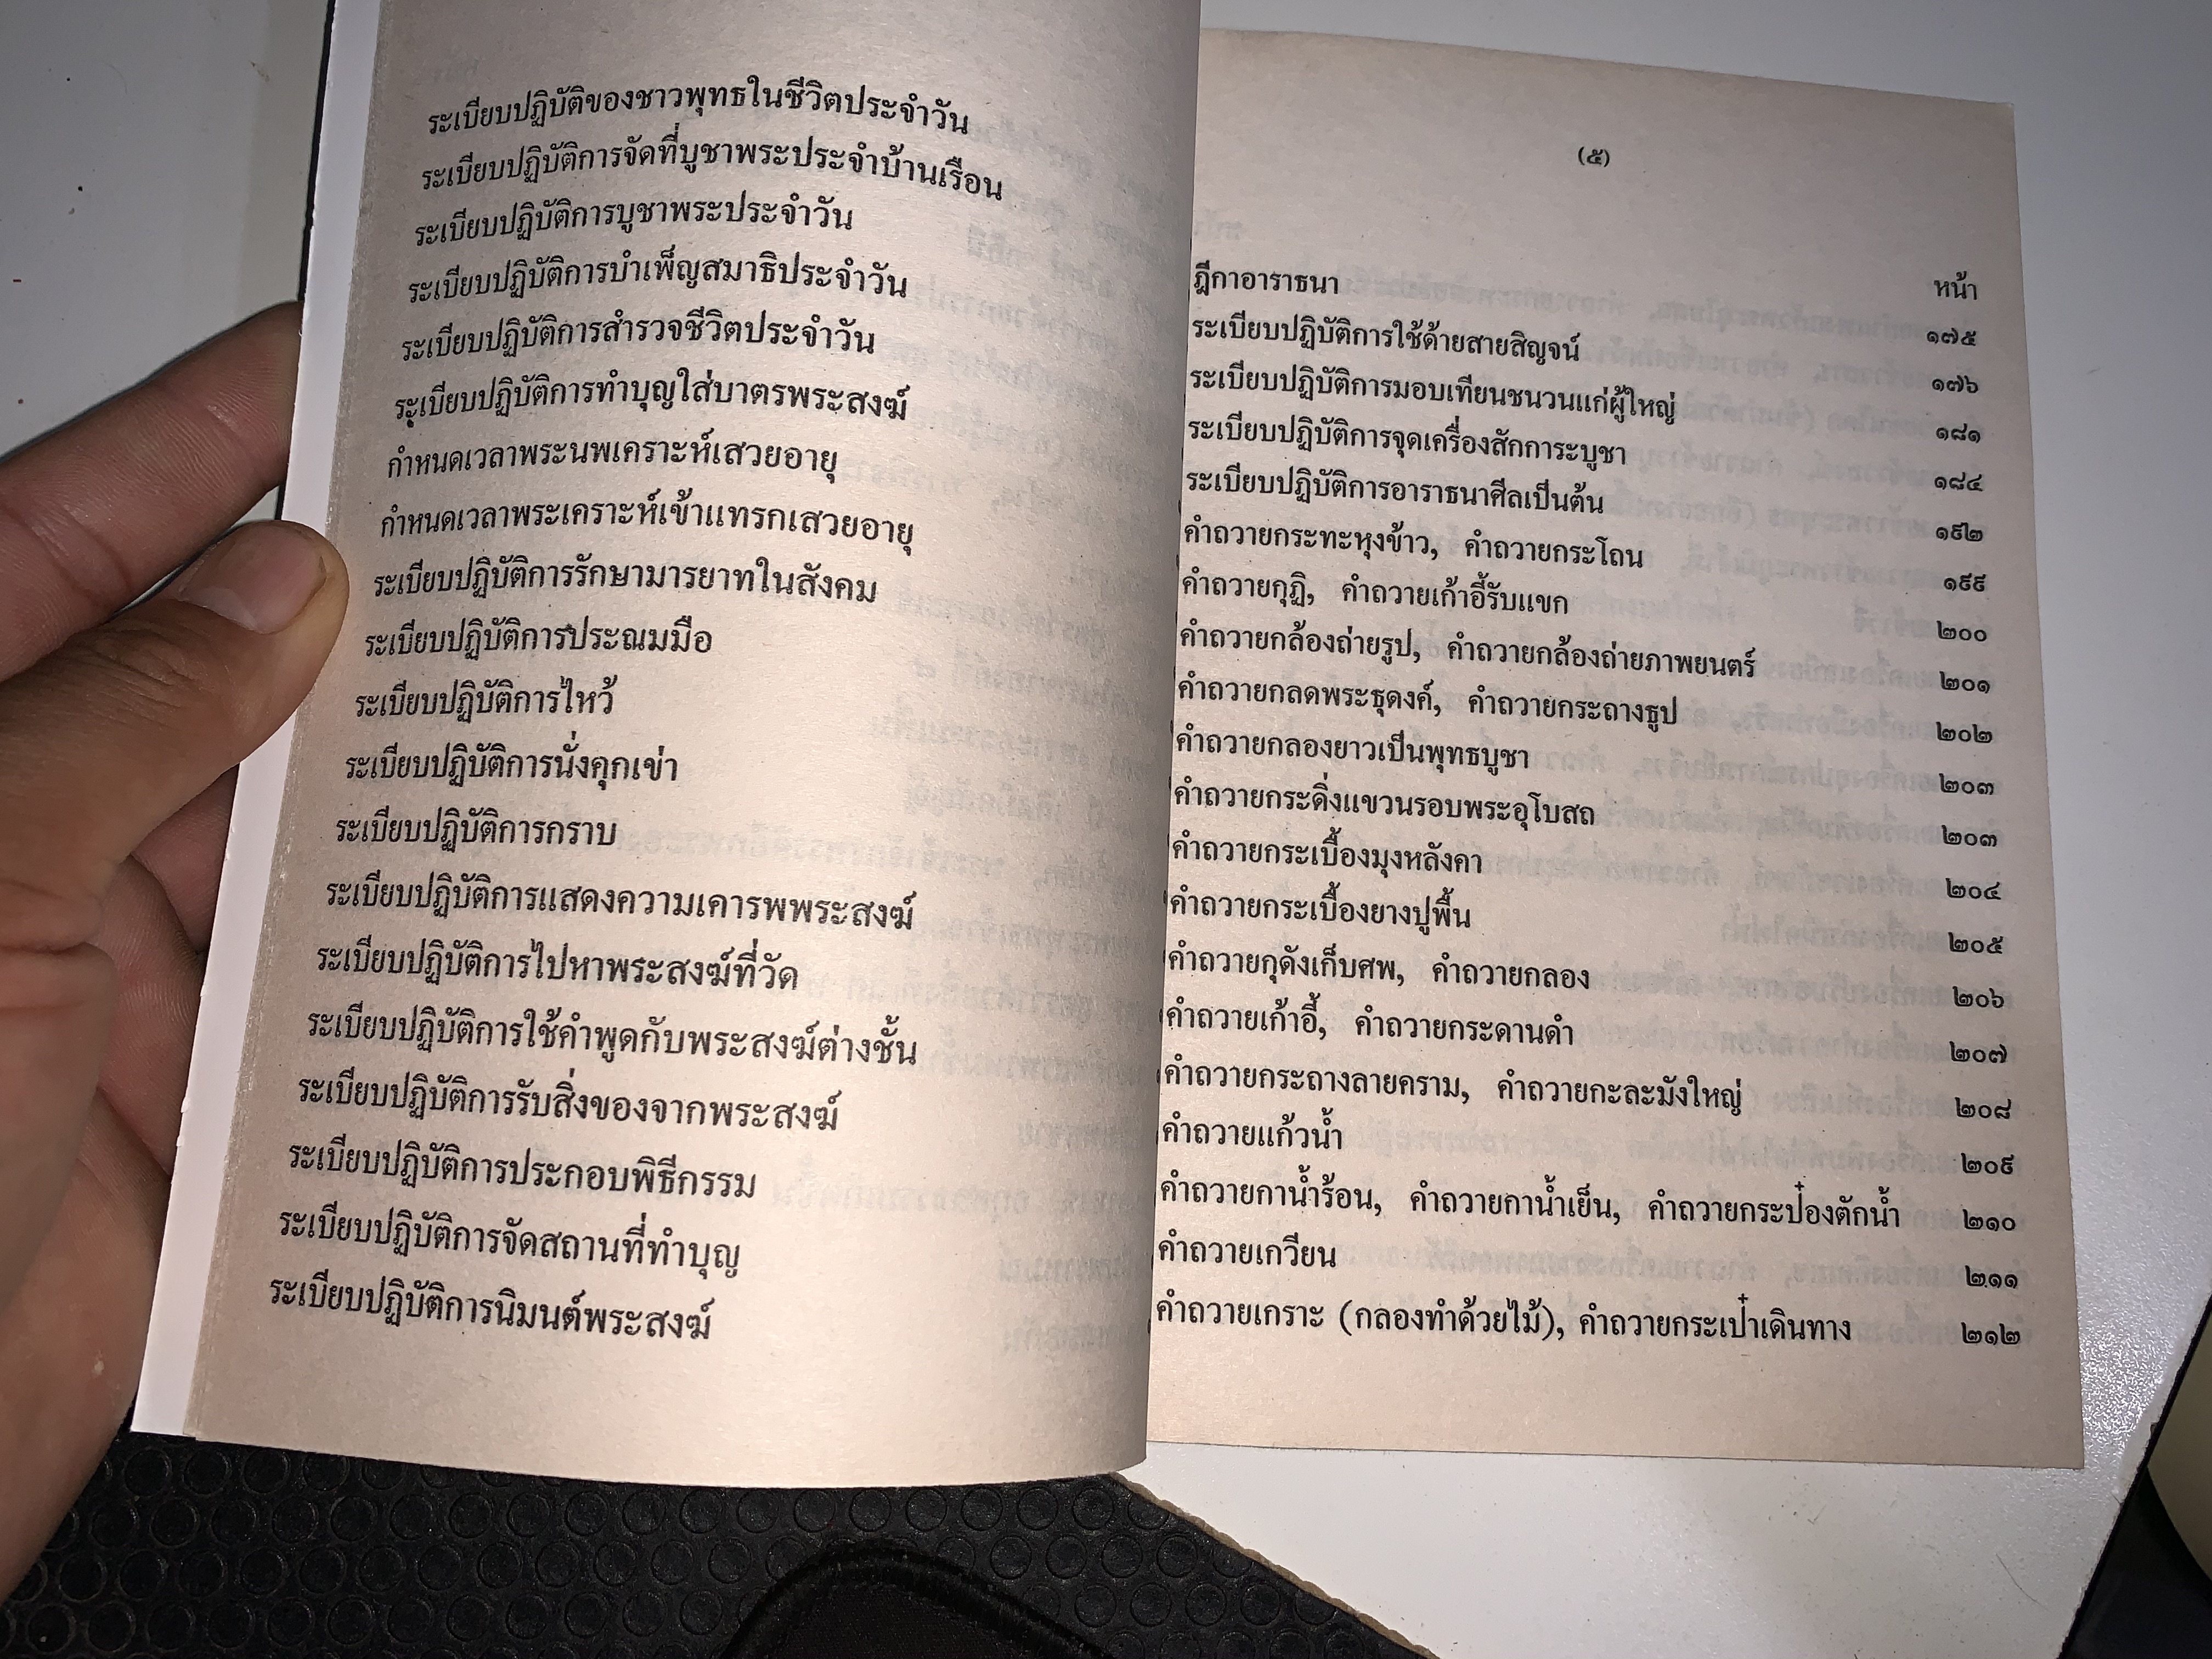 ระเบียบปฏิบัติของชาวพุทธในชีวิตประจำวัน
ระเบียบปฏิบัติการจัดที่บูชาพระประจำบ้านเรือน
ระเบียบปฏิบัติการบูชาพระประจำวัน
ระเบียบปฏิบัติการบำเพ็ญสมาธิประจำวัน
ระเบียบปฏิบัติการสำรวจชีวิตประจำวัน
ระเบียบปฏิบัติการทำบุญใส่บาตรพระสงฆ์
กำหนดเวลาพระนพเคราะห์เสวยอายุ
กำหนดเวลาพระเคราะห์เข้าแทรกเสวยอายุ
ระเบียบปฏิบัติการรักษามารยาทในสังคม
ระเบียบปฏิบัติการประณมมือ
ระเบียบปฏิบัติการไหว้
ระเบียบปฏิบัติการนั่งคุกเข่า
ระเบียบปฏิบัติการกราบ
ระเบียบปฏิบัติการแสดงความเคารพพระสงฆ์
ระเบียบปฏิบัติการไปหาพระสงฆ์ที่วัด
ระเบียบปฏิบัติการใช้คำพูดกับพระสงฆ์ต่างชั้น
ระเบียบปฏิบัติการรับสิ่งของจากพระสงฆ์
ระเบียบปฏิบัติการประกอบพิธีกรรม
ระเบียบปฏิบัติการจัดสถานที่ทำบุญ
ระเบียบปฏิบัติการนิมนต์พระสงฆ์
(๕)
หน้า
ฎีกาอาราธนา ๑๗๕
ระเบียบปฏิบัติการใช้ด้ายสายสิญจน์ ๑๗๖
ระเบียบปฏิบัติการมอบเทียนชนวนแก่ผู้ใหญ่ ๑๘๑
ระเบียบปฏิบัติการจุดเครื่องสักการะบูชา ๑๘๔
ระเบียบปฏิบัติการอาราธนาศีลเป็นต้น ๑๙๒
คำถวายกระทะหุงข้าว, คำถวายกระโถน ๑๙๙
คำถวายกุฏิ, คำถวายเก้าอี้รับแขก ๒๐๐
คำถวายกล้องถ่ายรูป, คำถวายกล้องถ่ายภาพยนตร์ ๒๐๑
คำถวายกลดพระธุดงค์, คำถวายกระถางธูป ๒๐๒
คำถวายกลองยาวเป็นพุทธบูชา ๒๐๓
คำถวายกระดิ่งแขวนรอบพระอุโบสถ ๒๐๓
คำถวายกระเบื้องมุงหลังคา ๒๐๔
คำถวายกระเบื้องยางปูพื้น ๒๐๕
คำถวายกุดังเก็บศพ, คำถวายกลอง ๒๐๖
คำถวายเก้าอี้, คำถวายกระดานดำ ๒๐๗
คำถวายกระถางลายคราม, คำถวายกะละมังใหญ่ ๒๐๘
คำถวายแก้วน้ำ ๒๐๙
คำถวายกาน้ำร้อน, คำถวายกาน้ำเย็น, คำถวายกระป๋องตักน้ำ ๒๑๐
คำถวายเกวียน ๒๑๑
คำถวายเกราะ (กลองทำด้วยไม้), คำถวายกระเป๋าเดินทาง ๒๑๒